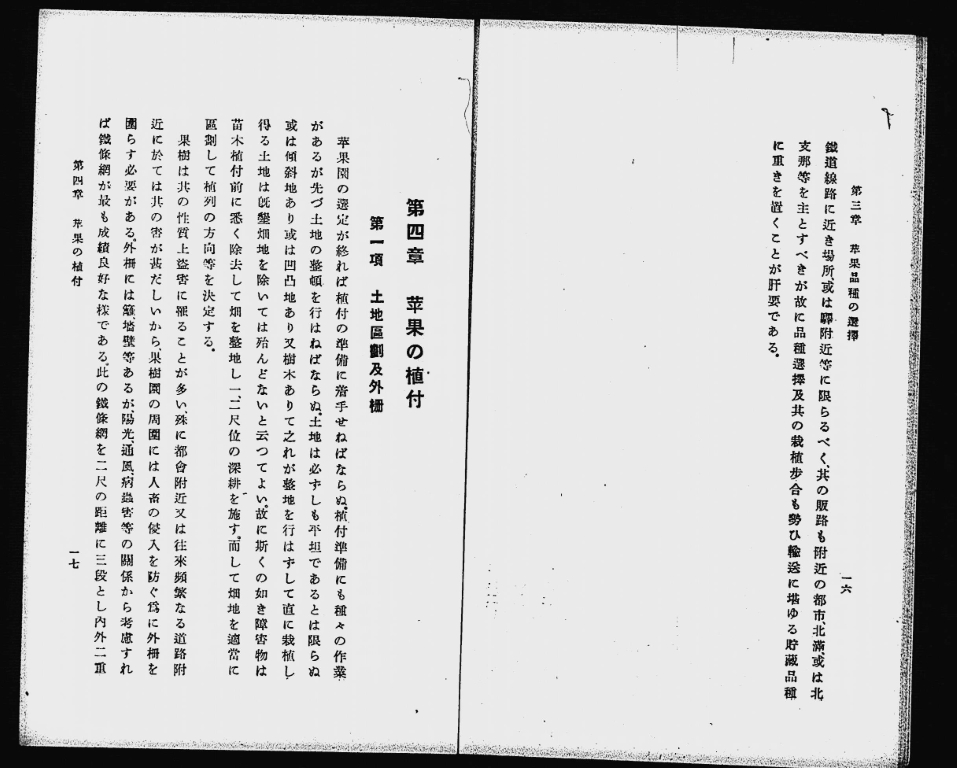 第三章　苹果品種の選擇
一六
鐵道線路に近き場所、或は驛附近等に限らるべく、其の販路も附近の都市、北滿、或は北
支那等を主とすべきが故に品種選擇及其の栽植歩合も勢ひ輸送に堪ゆる貯藏品種
に重きを置くことが肝要である。
第四章　苹果の植付
第一項　土地區劃及外柵
苹果園の選定が終れば植付の準備に着手せねばならぬ。植付準備にも種々の作業
があるが先づ土地の整頓を行はねばならぬ。土地は必ずしも平坦であるとは限らぬ
或は傾斜地あり或は凹凸地あり又樹木ありて之れが整地を行はずして直に栽植し
得る土地は既墾畑地を除いては殆んどないと云つてよい。故に斯くの如き障害物は
苗木植付前に悉く除去して畑を整地し一、二尺位の深耕を施す。而して畑地を適當に
區劃して植列の方向等を決定する。
果樹は其の性質上盜害に罹ることが多い、殊に都會附近又は往來頻繁なる道路附
近に於ては其の害が甚だしいから、果樹園の周圍には人畜の侵入を防ぐ爲に外柵を
圍らす必要がある。外柵には籬、墻壁等あるが、陽光、通風、病蟲害等の關係から考慮すれ
ば鐵條網が最も成績良好な樣である。此の鐵條網を二尺の距離に三段とし內外二重
第四章　苹果の植付
一七